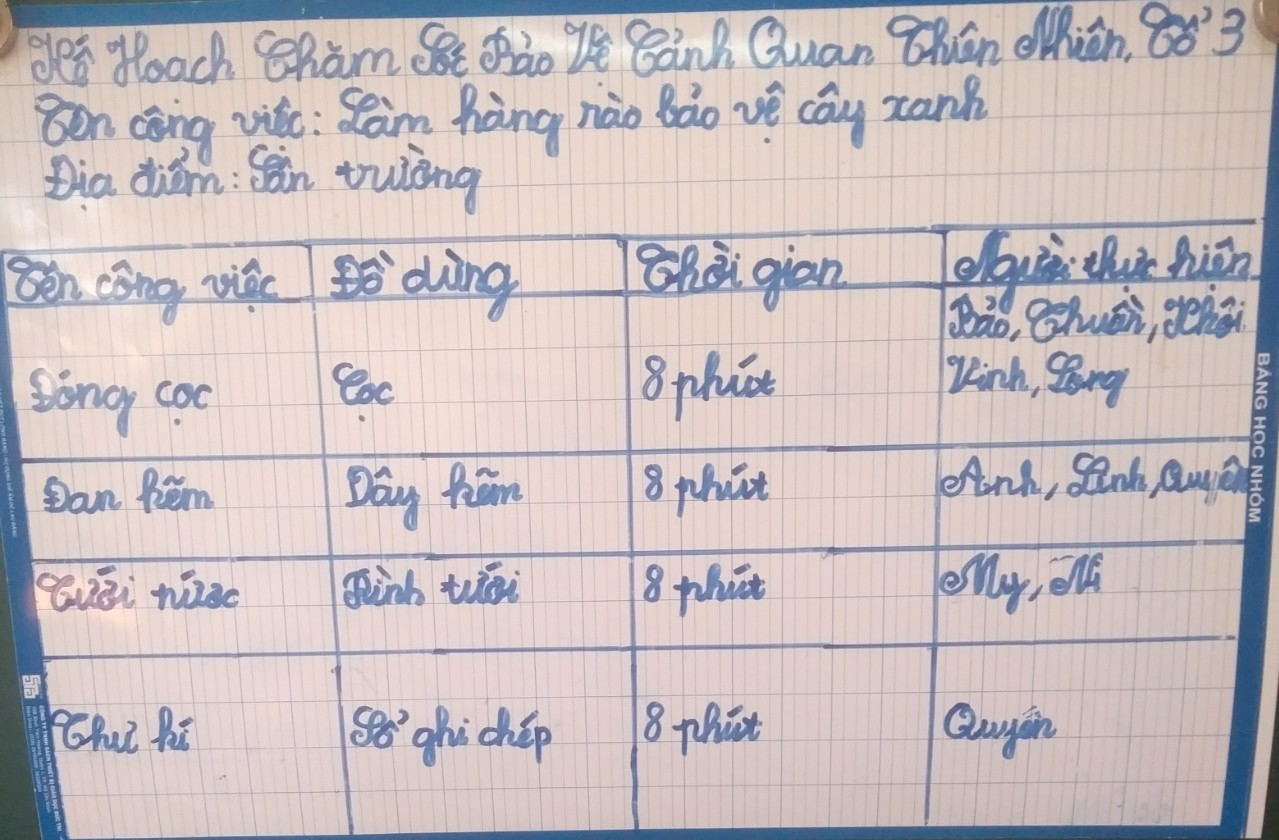 Kế Hoạch Chăm Sóc Bảo Vệ Cảnh Quan Thiên Nhiên. Tổ 3
Tên công việc: Làm hàng rào bảo vệ cây xanh
Địa điểm: Sân trường
Tên công việc Đồ dùng Thời gian Người thực hiện
Bảo, Thuần, Khôi
Đóng cọc Cọc 8 phút Vinh, Long
Đan kẽm Dây kẽm 8 phút Anh, Linh, Quyên
Tưới nước Bình tưới 8 phút My, Mi
Thư kí Sổ ghi chép 8 phút Quyên
BẢNG HỌC NHÓM